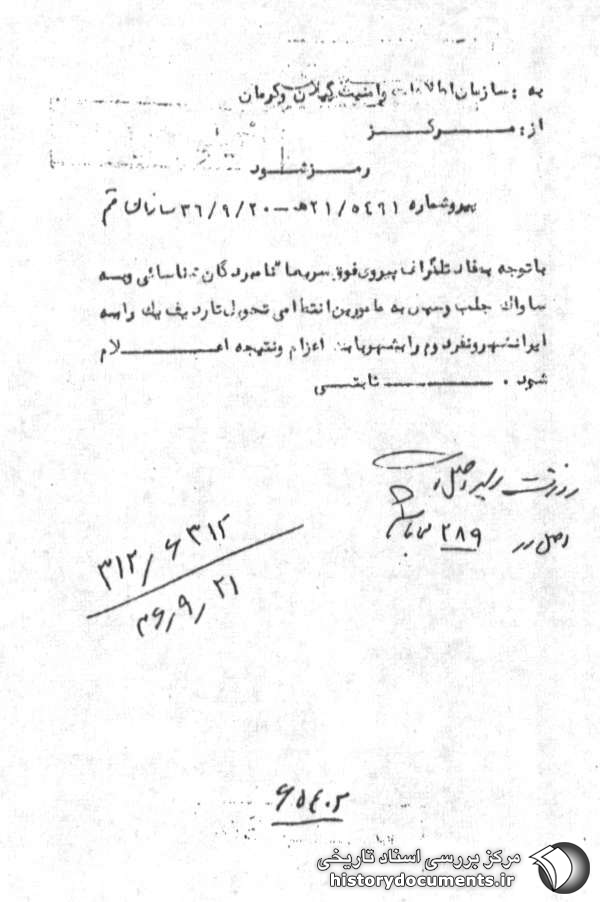 به : سازمان اطلاعات وامنیت گیلان وکرمان
از : مرکز
رمز شود
پیروشماره ۲۱/۵۴۶۱ه‍ـ ۳۶/۹/۲۰ سازمان قم
باتوجه بمفاد تلگراف پیروی فوق سریعا" نامبردگان شناسائی وبه
ساواک جلب وسپس به مامورین انتظامی تحویل تاردیف یک رابه
ایرانشهر ونفردوم رابشهربابک اعزام ونتیجه اعلام
شود . ثابتی
اصل در ۲۸۹
۳۱۲/۶۳۱۲
۳۶/۹/۲۱
۶۵۴۰۲
مرکز بررسی اسناد تاریخی
historydocuments.ir